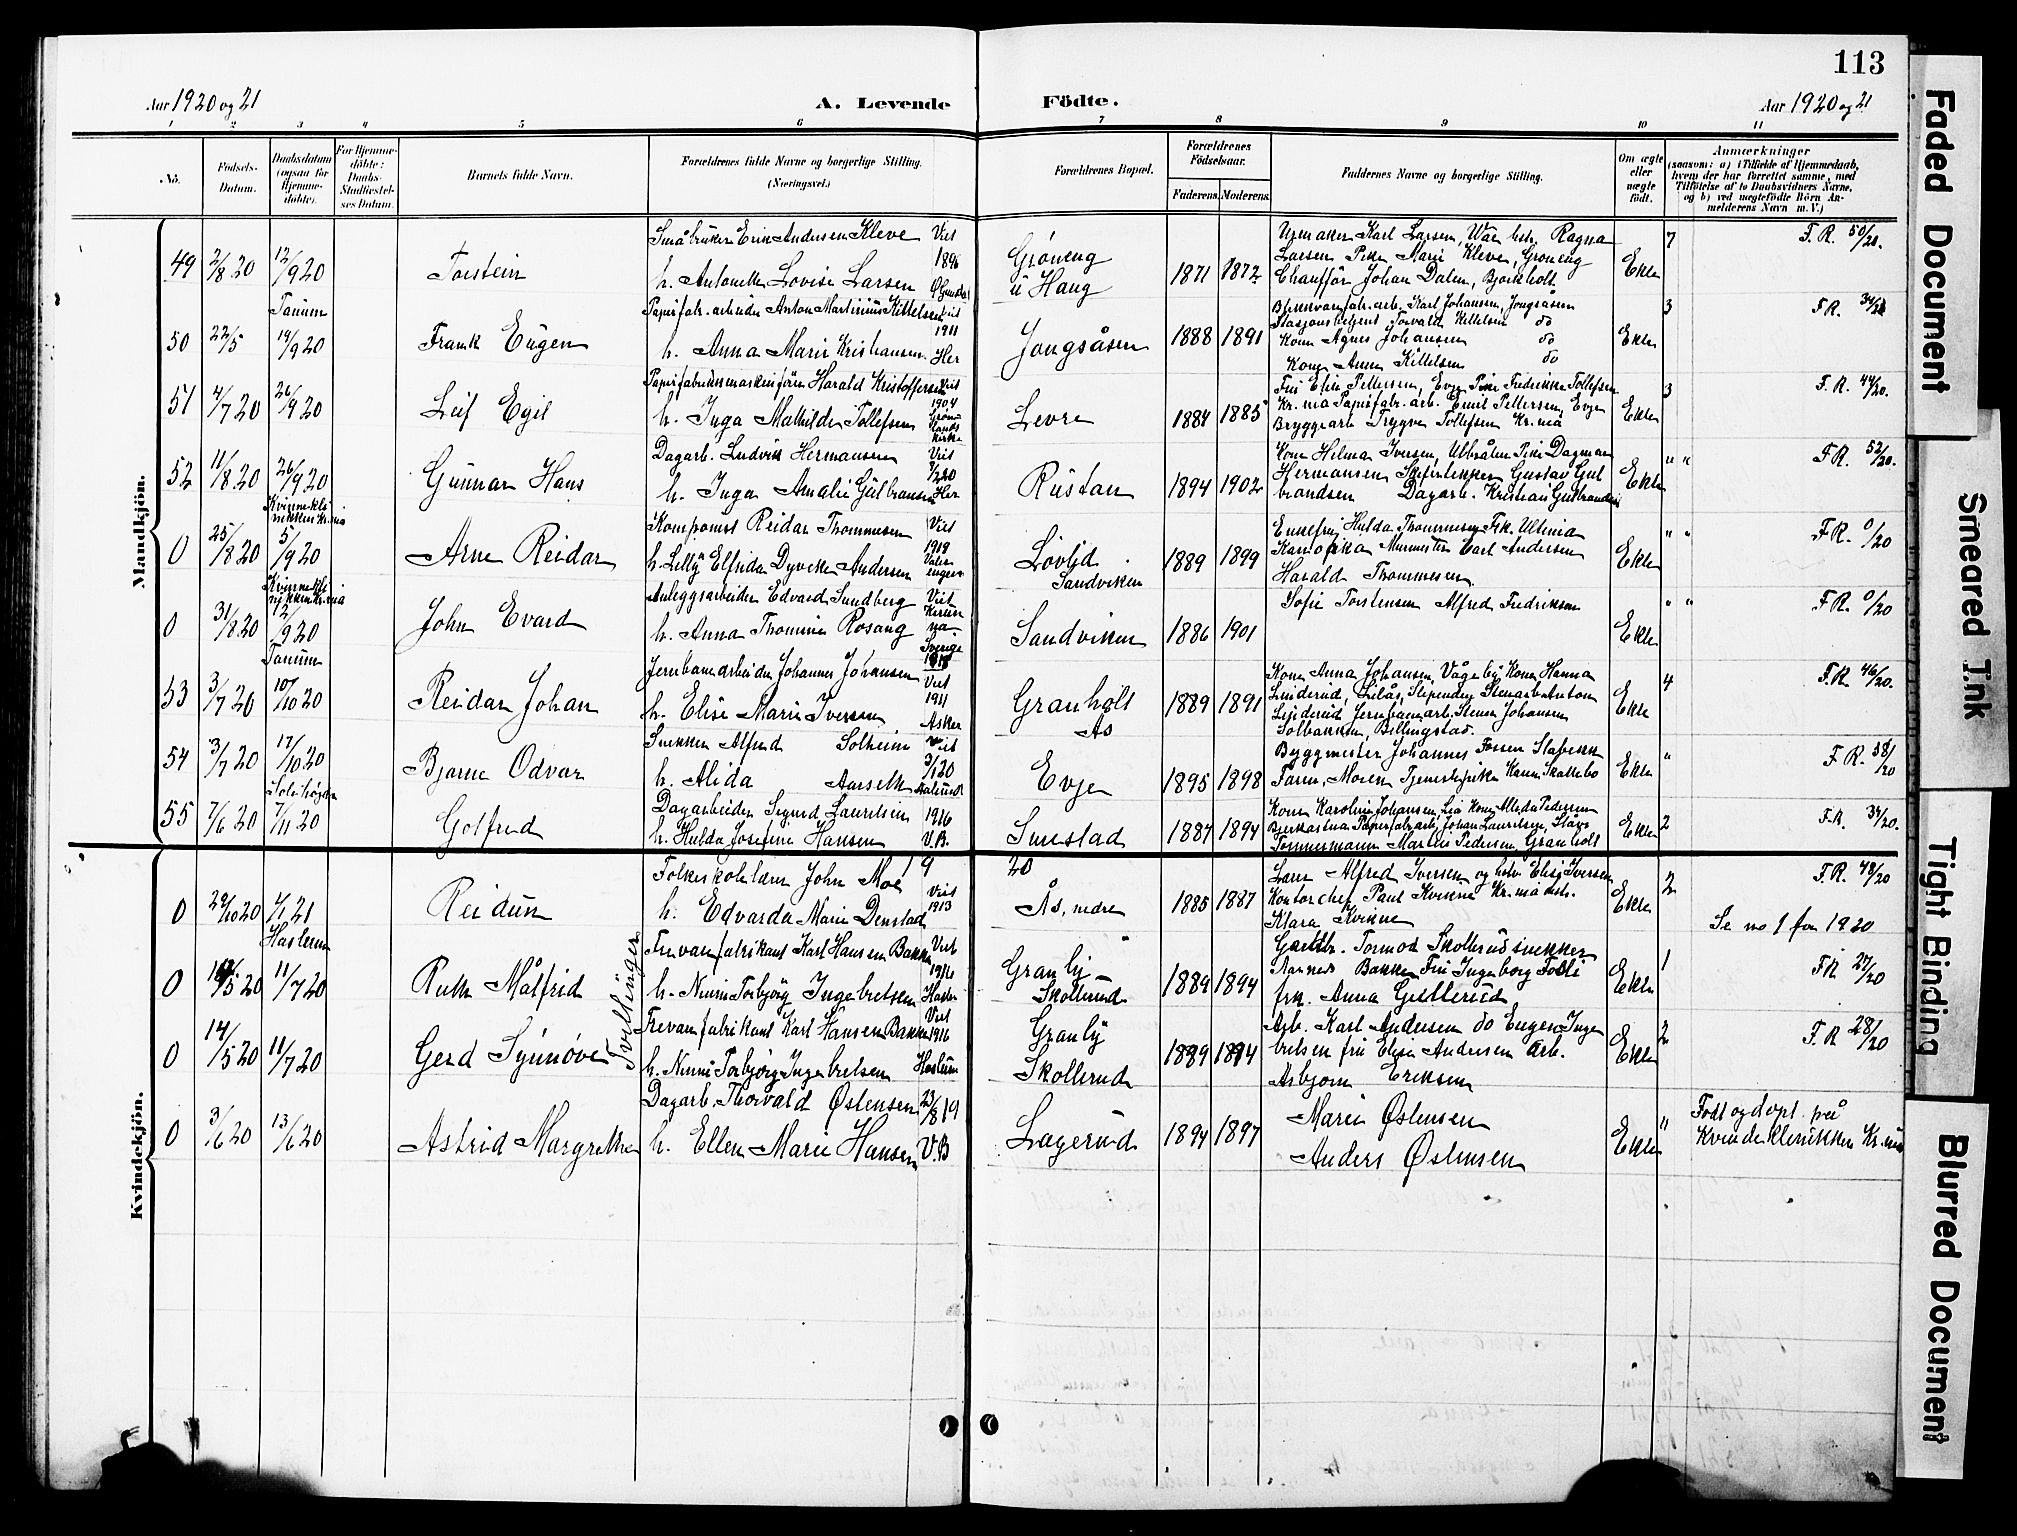 113
Aar 1920 og 21
A. Levende
Födte.
Aar 1920 og 21
1 2 3 4 5 6 7 8 9 10 11
No.
Födsels-Datum.
Daabsdatum (ogsaa for Hjemme-döbte).
For Hjemme-döbte: Daabs-Stadfæstel-ses Datum.
Barnets fulde Navn.
Forældrenes fulde Navne og borgerlige Stilling. (Næringsvei.)
Forældrenes Bopæl.
Forældrenes Födselsaar.
Faderens. Moderens.
Faddernes Navne og borgerlige Stilling.
Om ægte eller uægte födt.
Anmærkninger
(saasom: a) i Tilfælde af Hjemmedaab,
hvem der har forrettet samme, med
Tilföielse af to Daabsvidners Navne,
og b) ved uægtefödte Börn An-
melderens Navn m. V.)
Mandkjön.
49 2/8 20 12/9 20 Torstein
Småbruker Erik Andersen Kleve Viet 1896
h. Antonette Lovise Larsen
Grøneng
u Haug
1871 1872
Urmaker Karl Larsen, Ragna
Larsen Pike Marie Kleve, Grøneng
Chauffør Johan Dalen, Bjørkholt
Ekte 7 F.R. 50/20.
Tanum
50 22/5 19/9 20 Frank Eugen
Papirfabr. arbeider Anton Martinius Kittelsen Viet 1911
h. Anna Marie Kristiansen Her
Jongsåsen 1888 1891
Karl Johansen, Jongsåsen
Torvald Kittelsen do
Kone Agnes Johansen do
Kone Anna Kittelsen do
Ekte 3 F.R.
51 4/7 20 26/9 20 Leif Egil
Papirfabrikkmaskinfører Harald Kristoffersen Viet 1904
h. Inga Mathilde Tollefsen Grønlands Kirke
Levre 1884 1885
Fru Elise Pettersen, Evje Pike Fredrikke Tollefsen
Kr.ma Papirfabr. arb. Emil Pettersen, Evje
Bryggearb Trygve Tollefsen Kr.ma
Ekte 3 F.R. 44/20.
52 11/8 20 26/9 20 Gunnar Hans
Dagarb. Ludvik Hermansen Viet
h. Inga Amalie Gulbrandsen Her
Rustan 1894 1902
Kone Helma Iversen, Pike Dagmar
Hermansen Gustav Gul
brandsen Dagarb. Kristian Gulbrandsen
Ekte " " F.R. 52/20.
Kvinnekli
nikken Kr.ma
0 25/8 20 5/9 20 Arne Reidar
Komponist Reidar Thommesen Viet 1919
h. Lilly Elfrida Dyveke Andersen Vålerengen
Løvlid
Sandviken
1889 1899
Enkefru Hulda Thommesen Frk.
Murmester Carl Andersen
Harald Thommesen.
Ekte " " F.R. 0/20
Kvinnekli
nikken Kr.ma
0 31/8 20 12/9 20 John Evard
Anleggsarbeider Edvard Sundberg Viet
h. Anna Thomine Rosang Kiruna. Sverige 1918
Sandviken 1886 1901
Sofie Torstensen Alfred Fredriksen
Ekte " " F.R. 0/20
Tanum
53 3/7 20 10/10 20 Reidar Johan
Jernbanearbeider Johannes Johansen Viet 1911
h. Elise Marie Iversen Asker
Granholt
Ås
1889 1891
Kone Anna Johansen, Kone Hanna
Linderud, Slependen Stenarb Anton
Linderud Jernbanearb. Johansen
Solbakken, Billingstad.
Ekte 4 F.R. 46/20.
54 3/7 20 17/10 20 Bjarne Odvar
Snekker Alfred Solheim Viet 3/1 20
h. Alida Aarseth Aalesund
Evje 1895 1898
Byggmester Johannes Fossen Stabekk
Ekte " F.R. 38/20
55 7/6 20 7/11 20 Golfred
Dagarbeider Sigurd Lauritsen 1916
h. Hulda Josefine Hansen V.B.
Smestad 1887 1894
Kone Karoline Johansen, Lia Kone Alida Pedersen
Bjerkåstua Papirfabr. arb. Johan Lauritsen,
Tømmermann Martin Pedersen Granholt
Ekte 2 F.R.
Kvindekjön.
19 20
0 29/10 20 1/1 21 Reidun
Folkeskolelærer John Moe Viet 1913
h. Edvarda Marie Denstad
Ås, nedre 1885 1887
Lærer Alfred Iversen og hstr Elise Iversen
Kontorchef Paul Kvikne Kr.ma hstr.
Klara Kvikne
Ekte 2 F.R. 48/20
Se no 1 for 1920
Haslum
0 14/5 20 11/7 20 Ruth Målfrid
Tvillinger
Trevarefabrikant Karl Hansen Bakke Viet 1916
h. Ninni Torbjörg Ingebretsen Haslum
Granly
Skollerud
1889 1894
Gaardbr. Tormod Skollerud snekker
Bakken Fru Ingeborg
frk. Anna Gjetterud
Ekte 1 F.R 27/20
0 14/5 20 11/7 20 Gerd Synnøve
Trevarefabrikant Karl Hansen Bakke Viet 1916
h. Ninni Torbjörg Ingebretsen Haslum
Granly
Skollerud
1889 1894
Arb. Karl Andersen do Eugen Inge
bretsen fru Elise Andersen Arb.
Asbjørn Eriksen
Ekte 2 F.R 28/20
0 3/6 20 13/6 20 Astrid Margrethe
Dagarb. Thorvald Østensen 23/8 19
h. Ellen Marie Hansen V.B
Lagerud 1894 1897
Marie Østensen
Anders Østensen
Ekte "
Født og døpt på
Kvindeklinikken Kr.ma
Faded Document
Smeared Ink
Tight Binding
Blurred Document